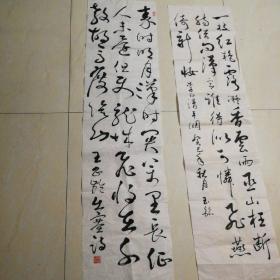 一枝红艳露凝香云雨巫山枉断
肠借问汉宫谁得似可怜飞燕
倚新妆
秦时明月汉时关万里长征
人未还但使龙城飞将在不
教胡马度阴山 王昌龄出塞诗